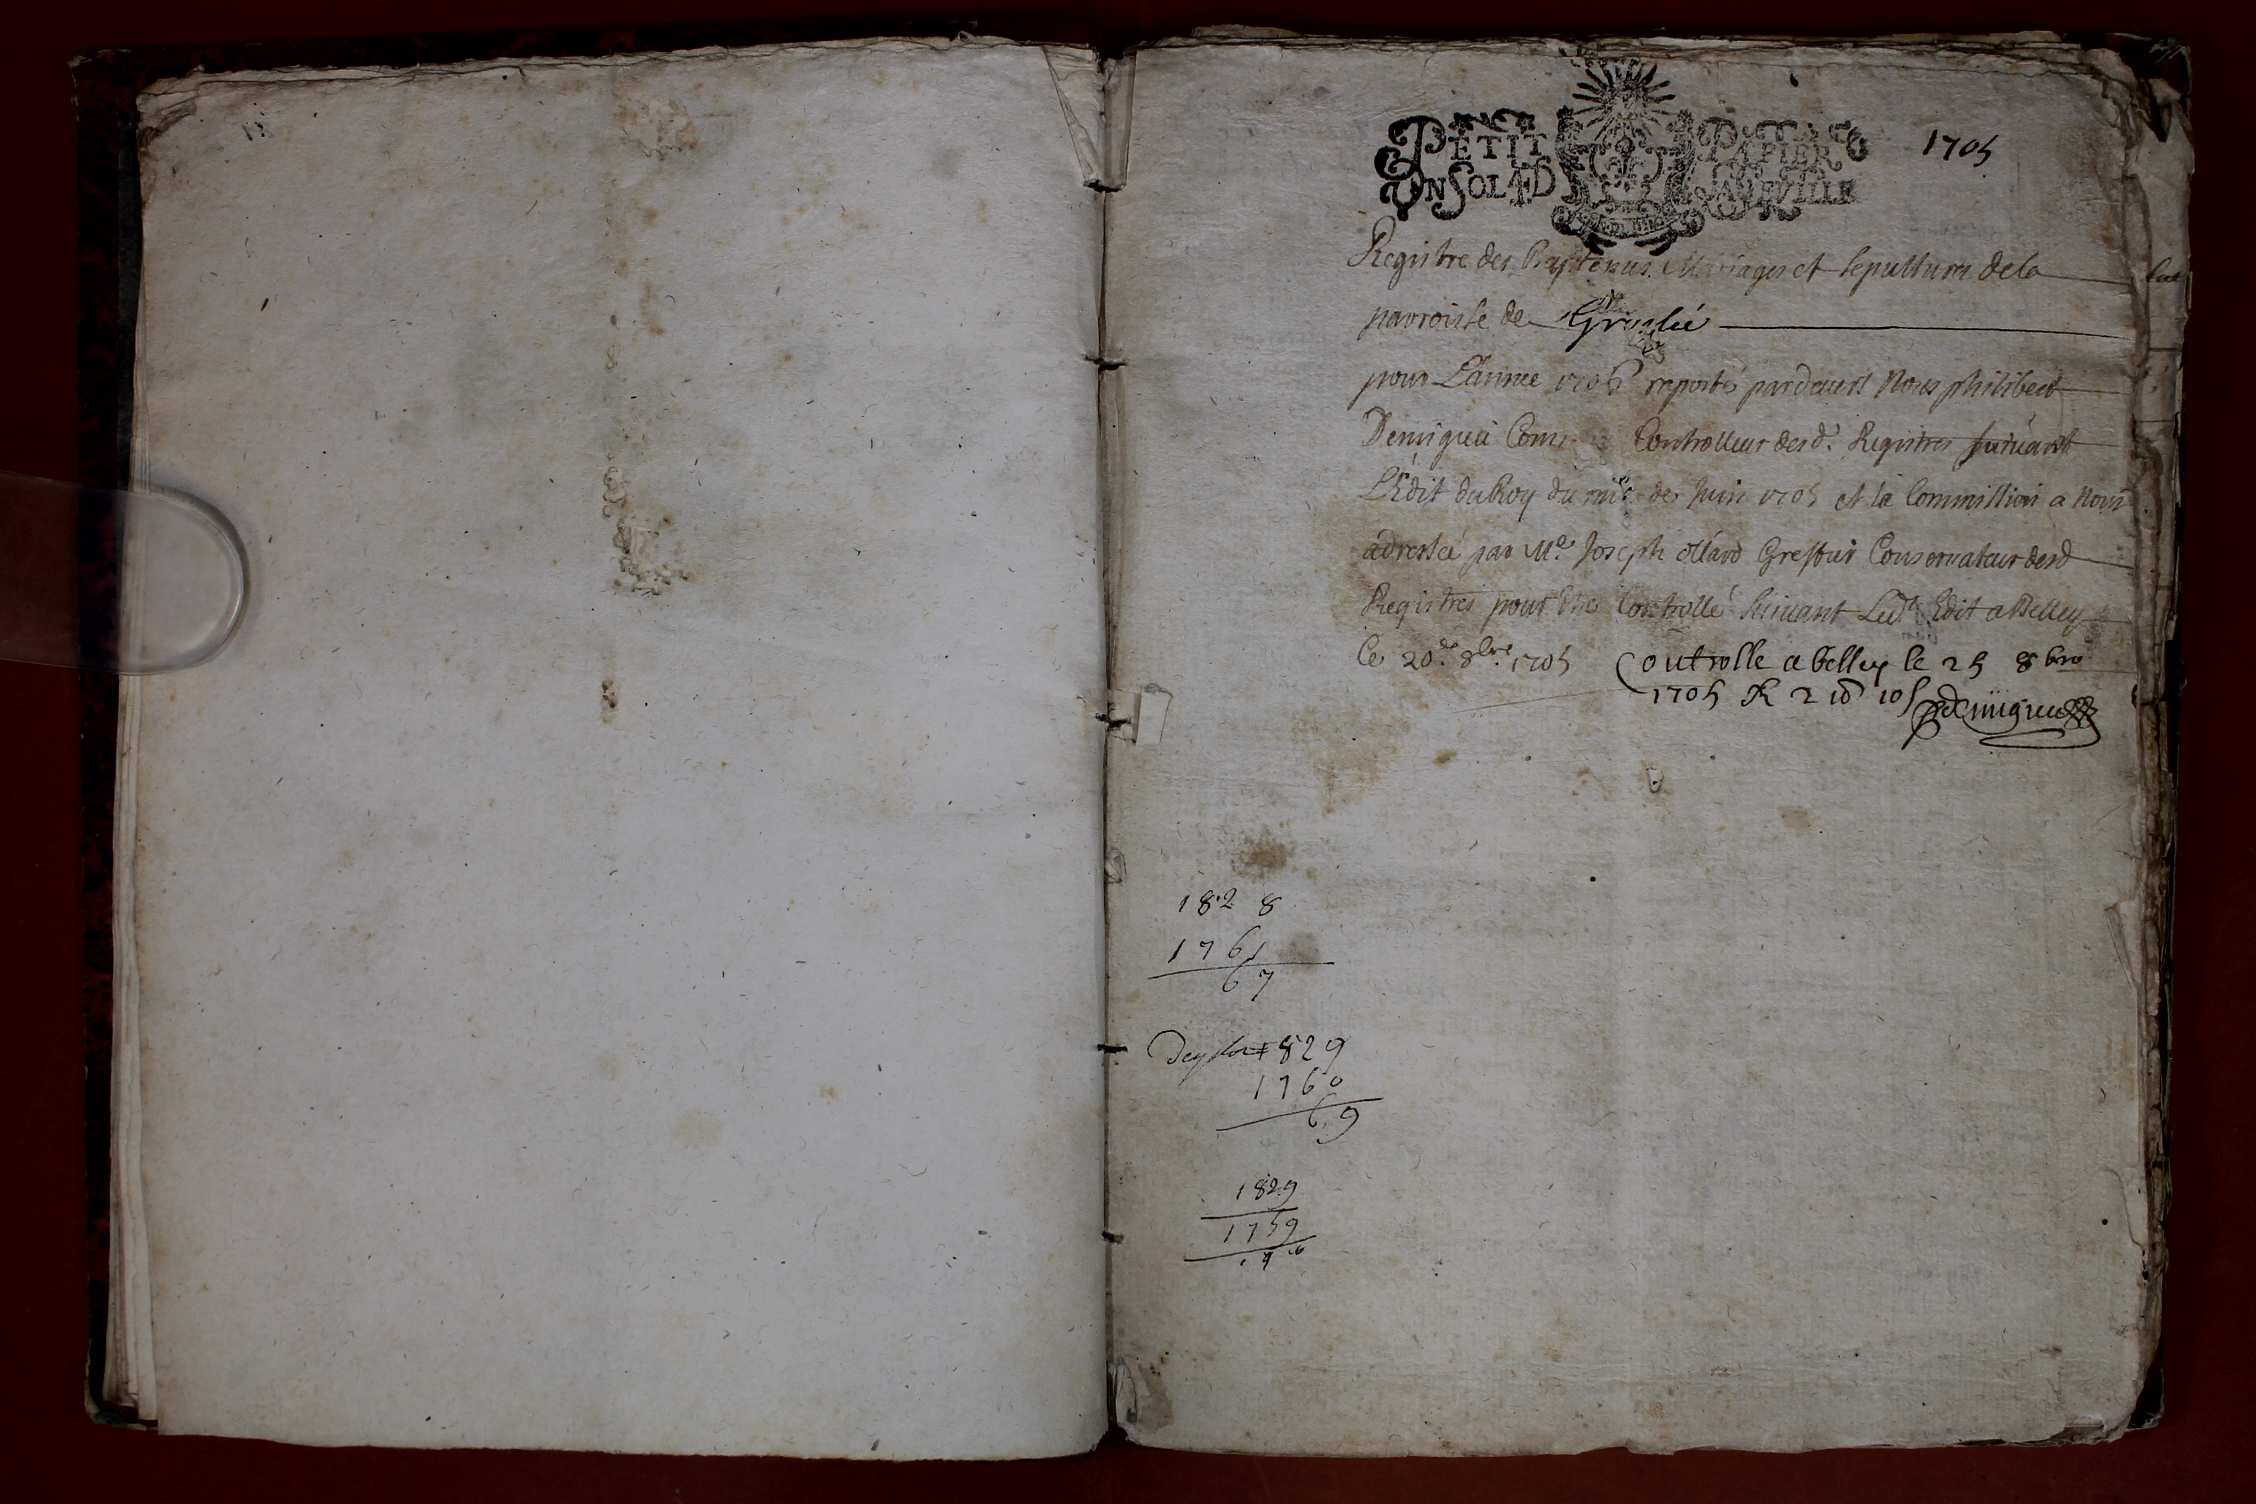 PETIT PAPIER
UN SOL 4D LA FEUILLE
1705
Registre des Baptemes Mariages et sepultures de la
parroisse de Groslée
pour L'année 1705 reportés pardevant Nous philibert
Demigieu Com Controlleur desd. Registres suivant
L'Edit du Roy du mois de Juin 1705 et la Commission a Nous
adressée par Me. Joseph Greffier Conservateur desd
Registres pour Etre Controllé suivant Led. Edit a Belley
Ce 20e 8bre 1705
Controlle a belley le 25 8bre
1705 R 2 10
demigieu
1828
1761
67
1829
1760
69
1829
1759
70